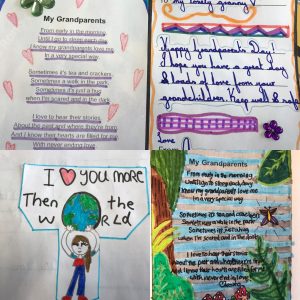 My Grandparents
From early in the morning
Until I go to sleep each day
I know my grandparents love me
In a very special way.
Sometimes it's tea and crackers
Sometimes a walk in the park,
Sometimes it's just a hug
when I'm scared and in the dark.
I love to hear their stories
About the past and where they're from
And I know their hearts are filled for me
With never ending love
To my lovely granny
Happy Grandparents Day!
I hope you have a great day
& loads of love from your
grandchildren Keep well & safe
Love
I ❤ you more
Then the
world
My Grandparents
From early in the morning
Until I go to sleep each day
I know my grandparents love me
In a very special way
Sometimes it's tea and crackers
Sometimes a walk in the park,
Sometimes it's just a hug
when I'm scared and in the dark.
I love to hear their stories
About the past and
And I know their hearts are filled for me
with never ending love